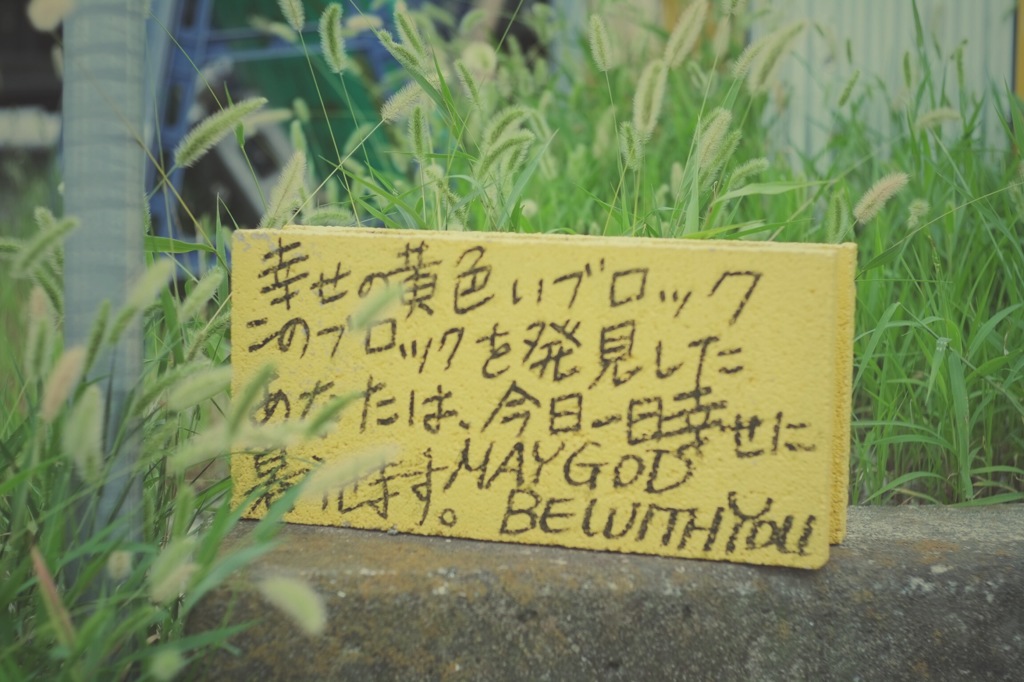 幸せの黄色いブロック
このブロックを発見した
あなたは、今日一日幸せに
見れます。MAY GOD
BE WITH YOU